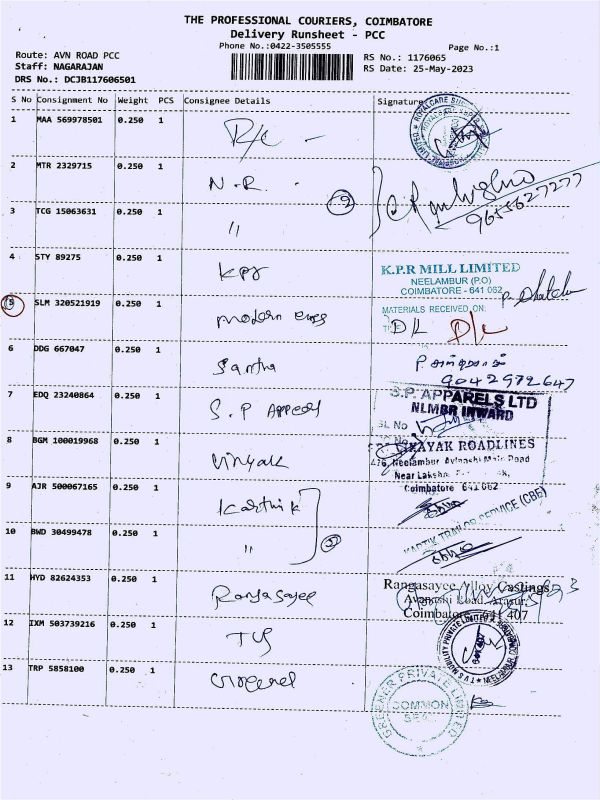 THE PROFESSIONAL COURIERS, COIMBATORE
Delivery Runsheet - PCC
Phone No.:0422-3505555
Page No.:1
Route: AVN ROAD PCC
RS No.: 1176065
Staff: NAGARAJAN
RS Date: 25-May-2023
DRS No.: DCJB117606501
S No Consignment No Weight PCS Consignee Details Signature
1 MAA 569978501 0.250 1 D/c
2 MTR 2329715 0.250 1 N.R. 2
9655627277
3 TCG 15063631 0.250 1 "
4 STY 89275 0.250 1 KPR
K.P.R MILL LIMITED
NEELAMBUR (P.O)
COIMBATORE - 641 062
MATERIALS RECEIVED ON
5 SLM 320521919 0.250 1 modern engg D/L D/c
6 DDG 667047 0.250 1 Santha
9042972647
7 EDQ 23240864 0.250 1 S.P Apperal
S.P. APPARELS LTD
NLMBR INWARD
SL. No
8 BGM 100019968 0.250 1 Vinyak
VINAYAK ROADLINES
Neelambur Avinashi Main Road
Near Lakshmi
Coimbatore 641 062
9 AJR 500067165 0.250 1 Karthik
KARTIK TRAILOR SERVICE (CBE)
10 BWD 30499478 0.250 1 "
11 HYD 82624353 0.250 1 Rangasayee
Rangasayee Alloy Castings
Avanashi Road, Arasur,
Coimbatore - 641 407
12 IXM 503739216 0.250 1 TVS
13 TRP 5858100 0.250 1
PRIVATE LIMITED
COMMON
SEAL